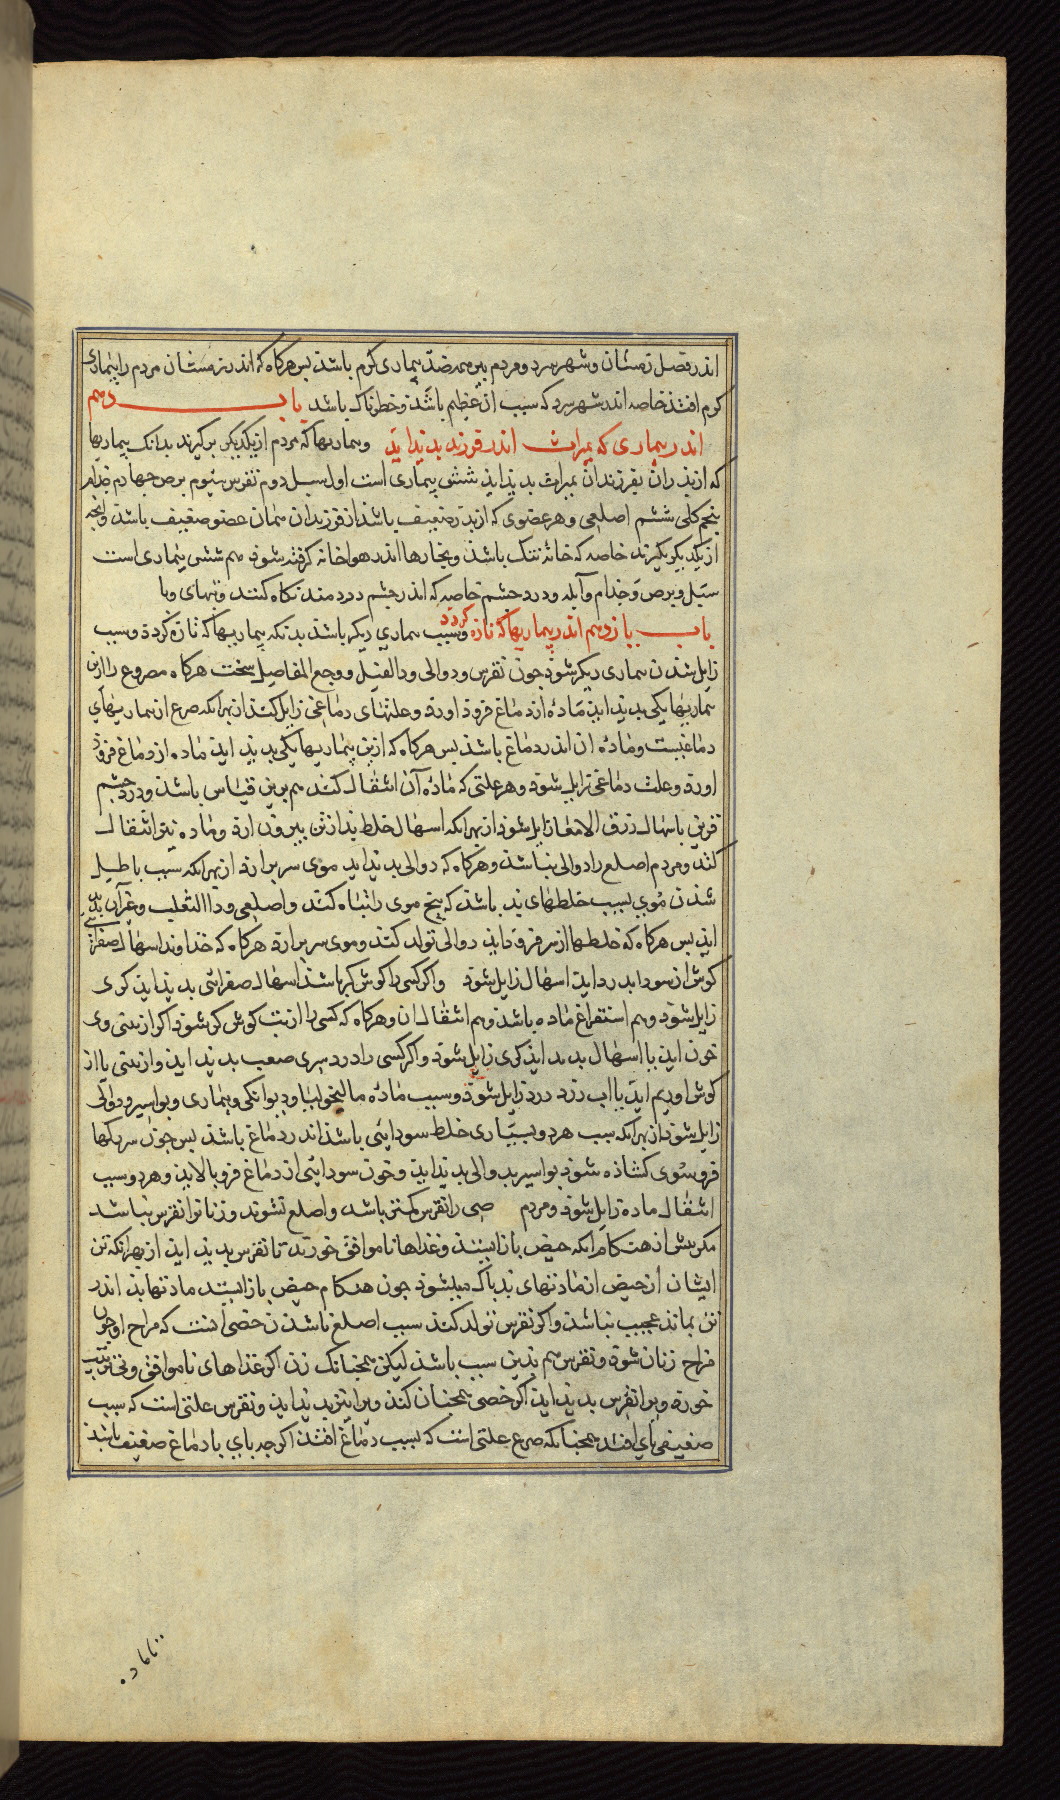 اندر فصل زمستان و شهر سرد و مردم پیر همه ضد بیماری گرم باشد پس هرکاه که اندر زمستان مردم را بیماری
کرم افتد خاصه اندر شهر سرد که سبب ان عظیم باشد و خطرناک باشد باب دهم
اندر بیماری که بمیراث اندر فرزند بدید اید و بیماریها که مردم از یکدیکر برکیرند بدانک بیماریها
که از پدران بفرزندان بمیراث بدید اید شش بیماری است اول سل دوم نقرس سیوم برص چهارم جذام
پنجم کلی ششم اصلعی و هر عضوی که از پدر ضعیف باشد از فرزندان همان عضو ضعیف باشد و انچه
از یکدیکر بکیرند خاصه که خانه تنک باشد و بخارها اندر هوا خانه کرفته شود هم شش بیماری است
سل و برص و جذام و آبله و درد چشم خاصه که اندر چشم دردمند نکاه کنند و تبهای وبا
باب یازدهم اندر بیماریها که تازه کردد و سبب بیماری دیکر باشد بدانکه بیماریها که تازه کردد و سبب
زایل شدن بیماری دیکر شود چون نقرس و دوالی و داالفیل و وجع المفاصل سخت هرکاه مصروع را ازین
بیماریها یکی بدید اید ماده از دماغ فرود اورد و علتهای دماغی زایل کند از بهر انکه صرع از بیماریهای
دماغیست و ماده ان اندر دماغ باشد پس هرکاه که ازین بیماریها یکی بدید اید ماده از دماغ فرود
اورد و علت دماغی زایل شود و هر علتی که ماده آن انتقال کند هم برین قیاس باشد و درد چشم
قرنی باسهال زلق الامعا زایل شود از بهر انکه اسهال خلط بد از تن بیرون ارد و ماده نیز انتقال
کند و مردم اصلع را دوالی نباشد و هرکاه که دوالی بدید اید موی سر بر ارد از بهر انکه سبب باطل
شدن موی بسبب خلطهای بد باشد که بیخ موی را تباه کند و اصلعی و داالثعلب و غیر آن بدید
اید پس هرکاه که خلطها از سر فرود اید دوالی تولد کند و موی سر بر ارد هرکاه که خداوند اسهال صفرائی
کوش از سودا بدرد اید اسهال زایل شود و اکر کسی را کوش کر باشد اسهال صفرائی بدید اید کری
زایل شود و هم استفراغ ماده باشد و هم انتقال ان و هرکاه که کسی را از تب کوش کر شود اکر از بینی وی
خون اید یا اسهال بدید اید کری زایل شود و اکر کسی را درد سری صعب بدید اید و از بینی یا از
کوش او ریم اید یا اب زرد درد زایل شود و سبب ماده مالیخولیا و دیوانکی و بیماری و بواسیر و دوالی
زایل شود از بهر انکه سبب هر دو بسیاری خلط سودایی باشد اندر دماغ باشد پس چون سر رکها
فرو سوی کشاده شود بواسیر و دوالی بدید اید و خون سودایی از دماغ فرو بالاید و هر دو سبب
انتقال ماده زایل شود و مردم صی را نقرس کمتر باشد و اصلع نشوند و زنان را نقرس نباشد
مکر بیش از هنکام انکه حیض باز ایستد و غذاها ناموافق خورند تا نقرس بدید اید از بهر انکه تن
ایشان از حیض از ماد‌تهای بد پاک میشود چون هنکام حیض باز ایستد ماد‌تها بد اندر
تن بماند عجیب نباشد و اکر نقرس تولد کند سبب اصلع ناشدن خصی انست که مزاج او چون
مزاج زنان شود و نقرس هم بدین سبب باشد لیکن همچنانک زن اکر غذاهای ناموافق و بی ترتیب
خورد ویرا نقرس بدید اید اکر خصی همچنان کند ویرا نیز بدید اید و نقرس علتی است که سبب
ضعیفی پای افتد همچنانکه صرع علتی است که بسبب دماغ افتد اکر چه پای یا دماغ ضعیف باشد